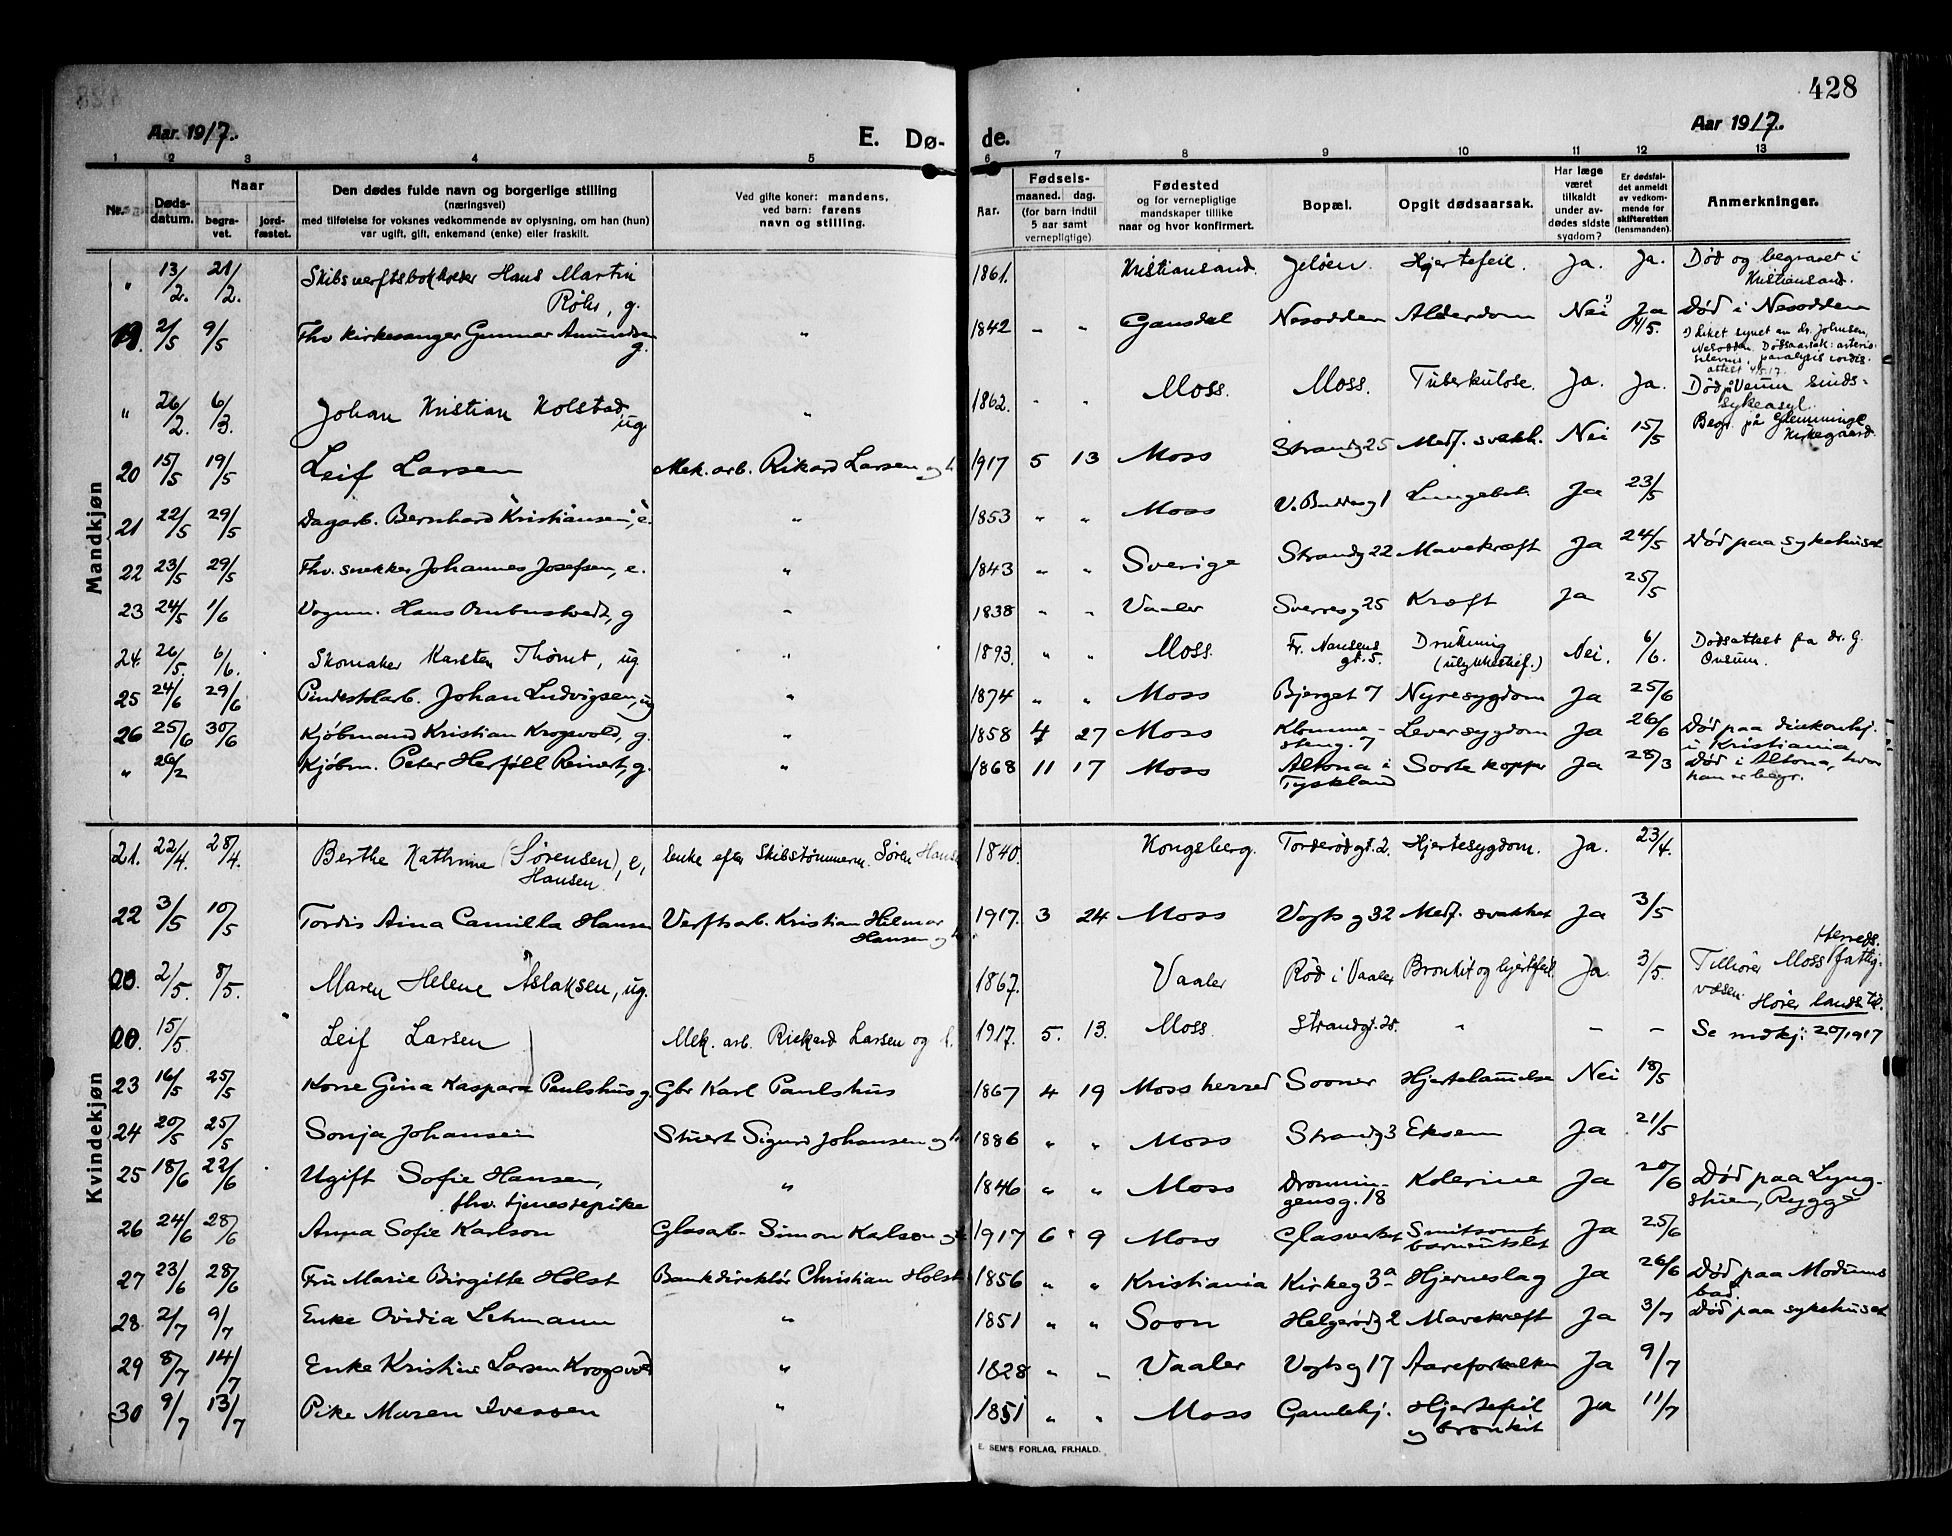 428
Aar. 1917. E. Dø- de. Aar 1917.
1 2 3 4 5 6 7 8 9 10 11 12 13
Nr.
Døds-
datum.
Naar
begra-
vet.
jord-
fæstet.
Den dødes fulde navn og borgerlige stilling
(næringsvei)
med tilføielse for voksnes vedkommende av oplysning, om han (hun)
var ugift, gift, enkemand (enke) eller fraskilt.
Ved gifte koner: mandens,
ved barn: farens
navn og stilling.
Aar.
Fødsels-
maaned. dag.
(for barn indtil
5 aar samt
vernepligtige).
Fødested
og for vernepligtige
mandskaper tillike
naar og hvor konfirmert.
Bopæl.
Opgit dødsaarsak.
Har læge
været
tilkaldt
under av-
dødes sidste
sygdom?
Er dødsfal-
det anmeldt
av vedkom-
mende for
skifteretten
(lensmanden).
Anmerkninger.
Mandkjøn
" 13/2. 21/2. Skibsverftsbokholder Hans Martin
Røhr, g. 1861. Kristiansand. Jeløen. Hjertefeil. Ja. Ja. Død og begravet i
Kristiansand.
19. 2/5 9/5 Fhv. Kirkesanger Gunnar Amundsen
g. " 1842 " " Gansdal Nesodden Alderdom Nei 1) Ja
4/5. Død i Nesodden
1) Liket synet av dr. Johnsen,
Nesodden. Dødsaarsak: arterio-
sclerosis, paralysis cordis.
attest 4/5.17.
" 26/2. 6/3. Johan Kristian Kolstad,
ug. " 1862. " " Moss. Moss. Tuberkulose. Ja. Ja. Død på Veum sinds-
sykeasyl.
Begr. på Glemminge
Kirkegaard.
20 15/5 19/5 Leif Larsen Mek. arb. Rikard Larsen og h. 1917 5 13 Moss Strandg 25 Medf. svakh. Nei 15/5
21 22/5 29/5 Dagarb. Bernhard Kristiansen, e. " 1853 " " Moss V. 1 Lungebet. Ja 23/5
22 23/5 29/5 Fhv. snekker Johannes Josefsen, e. " 1843 " " Sverige Strandg 22 Mavekræft Ja 24/5 Død paa sykehuset
23 24/5 1/6 Vognm. Hans g " 1838 " " Vaaler Sverresg 25 Kræft Ja 25/5
24. 26/5. 6/6. Skomaker Karsten ug " 1893. " " Moss. Fr. Nansens
gt. 5. Drukning
(ulykkestilf.) Nei. 6/6. Dødsattest fra dr. G.
Onsum.
25 24/6 29/6 Johan Ludvigsen, ug " 1874 " " Moss Bjerget 7 Nyresygdom Ja 25/6
26 25/6 30/6 Kjøbmand Kristian Krogsvold, g. " 1858 4 27 Moss
7 Leversygdom Ja 26/6 Død paa diakonhj.
i Kristiania
" 26/2 Kjøbm. Peter Herføll Reinert, g. " 1868 11 17 Moss Altona i
Tyskland Sorte kopper Ja 28/3 Død i Altona, hvor
han er begr.
Kvindekjøn
21. 22/4. 28/4. Berthe Kathrine (Sørensen), e,
Hansen. Enke efter Skibstømmerm. Søren Hansen 1840. Kongsberg. Torderødgt. 2. Hjertesygdom. Ja. 23/4.
22 3/5 10/5 Tordis Aina Camilla Hansen Verftsarb. Kristian Hilmar
Hansen og h. 1917. 3 24 Moss Vogts g 32 Medf. svakhet Ja 3/5
20. 2/5. 8/5. Maren Helene Aslaksen, ug. 1867. Vaaler Rød i Vaaler Bronkit og hjertefeil Ja. 3/5. Tilhører Moss Herreds. fattig-
væsen. Hører landst. til.
20. 15/5. Leif Larsen Mek. arb. Rickard Larsen og h. 1917. 5. 13. Moss. Strandgt. 25. " – – Se mdkj: 20/1917
23 16/5 25/5 Kone Gina Kaspara Paulshus g. Gbr Karl Paulshus 1867 4 19 Moss herred Sooner Hjertelammelse Nei 18/5
24 20/5 25/5 Sonja Johansen Stuert Sigurd Johansen og h. 1886 " " Moss Strandg 3 Eksem Ja 21/5
25 18/6 22/6 Ugift Sofie Hansen,
fhv. tjenestepike " 1846 " " Moss Dronnin-
gensg. 18 Kolerine Ja 20/6 Død paa Lyng-
stuen, Rygge
26 24/6 28/6 Anna Sofie Karlson Glasarb. Simon Karlson og h. 1917 6 9 Moss Glasverket Smitsomt
barneutslet Ja 25/6
27 23/6 28/6 Fru Marie Birgitte Holst Bankdirektør Christian Holst 1856 " " Kristiania Kirkeg 3a Hjerneslag Ja 26/6 Død paa Modums
bad
28 2/7 9/7 Enke Ovidia Lehmann " 1851 " " Soon Helgerødg 2 Mavekræft Ja 3/7 Død paa sykehuset
29 8/7 14/7 Enke Kristine Larsen Krogsvold " 1828 " " Vaaler Vogts g 17 Aareforkalkn Ja 9/7
30 9/7 13/7 Pike Maren Iversen " 1851 " " Moss Gamlehj. Hjertefeil
og bronkit Ja 11/7
E. SEM'S FORLAG, FR.HALD.